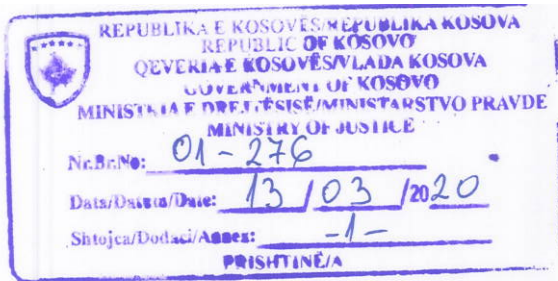 REPUBLIKA E KOSOVËS/REPUBLIKA KOSOVA
REPUBLIC OF KOSOVO
QEVERIA E KOSOVËS/VLADA KOSOVA
GOVERNMENT OF KOSOVO
MINISTRIA E DREJTËSISË/MINISTARSTVO PRAVDE
MINISTRY OF JUSTICE
Nr.Br.No: 01-276
Data/Datum/Date: 13/03/2020
Shtojca/Dodaci/Annex: -1-
PRISHTINË/A